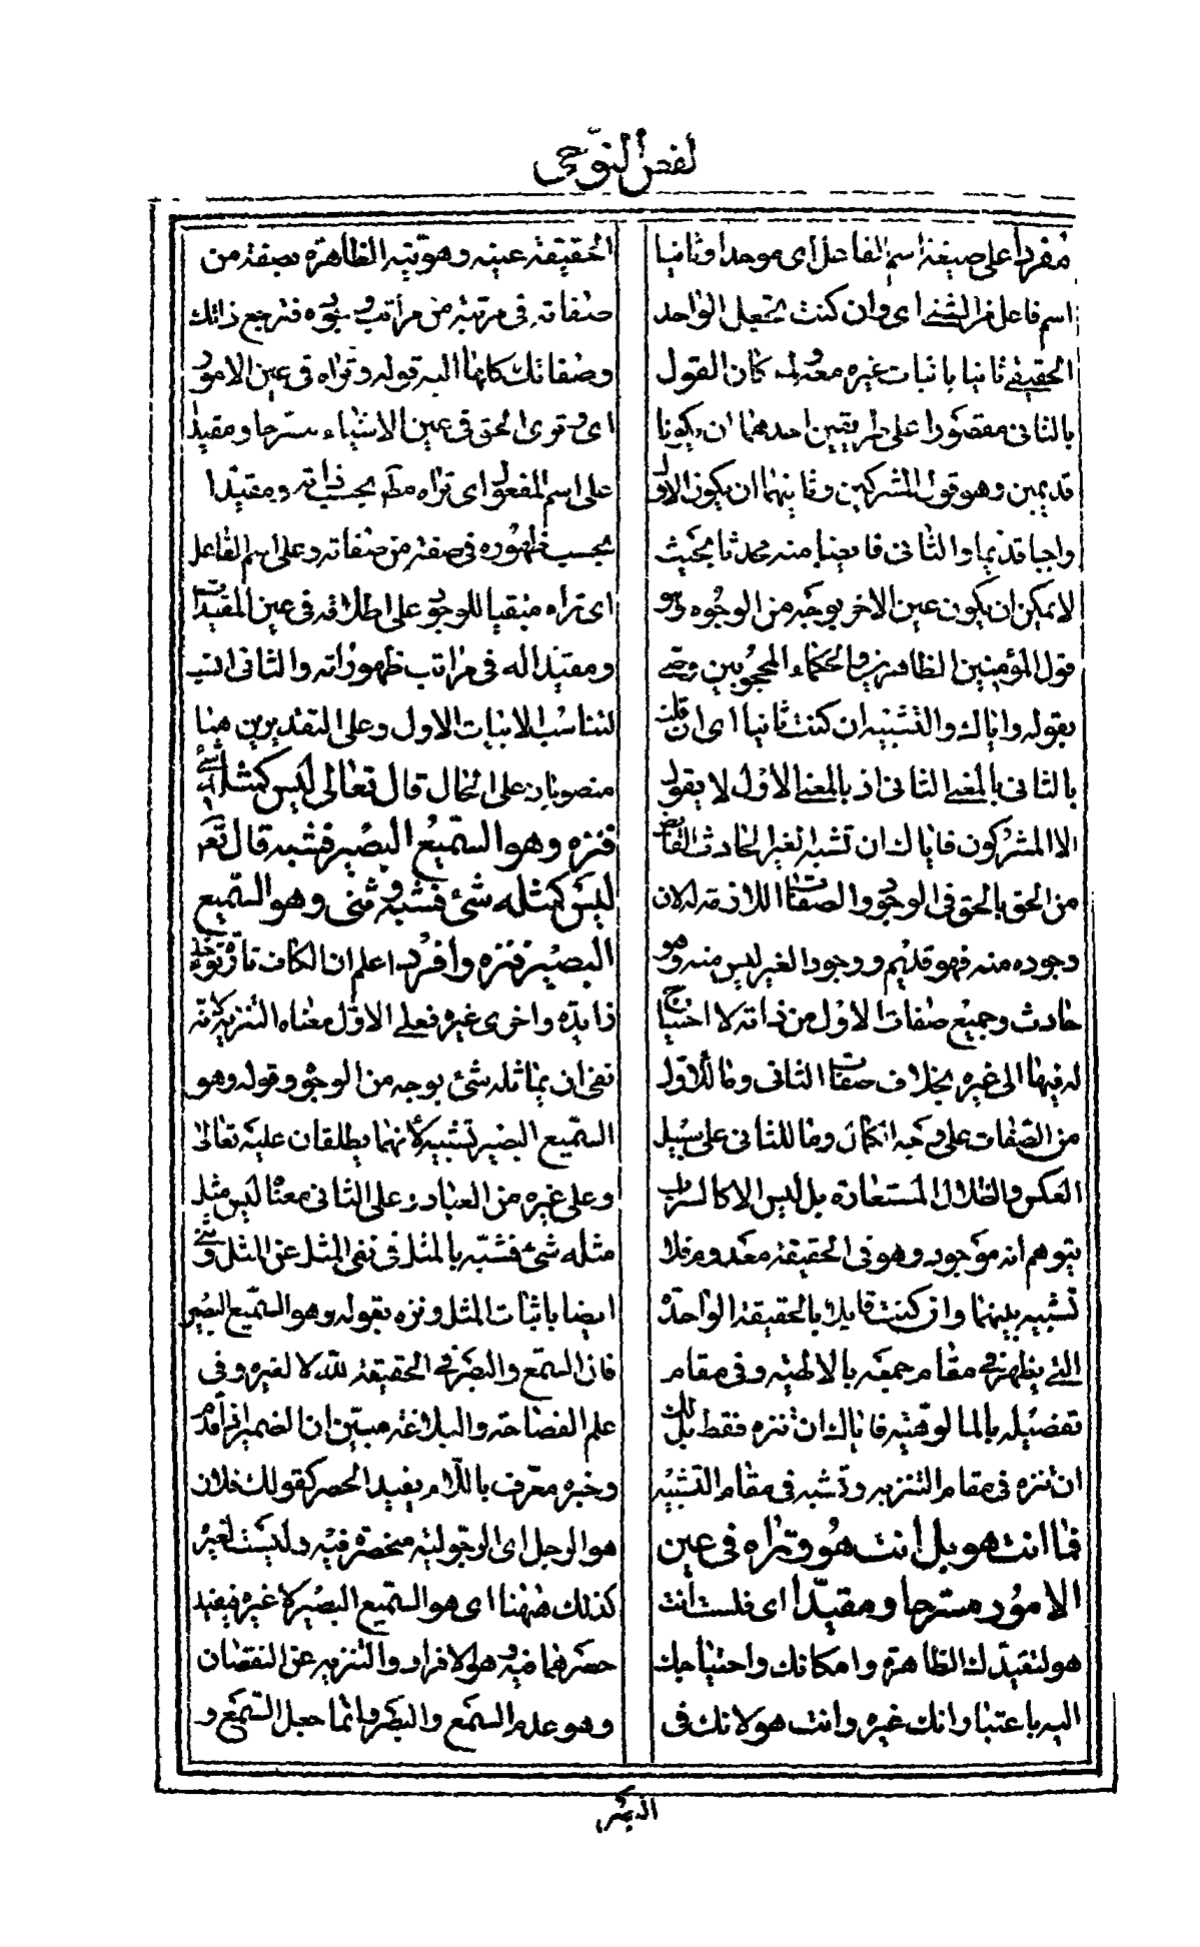 الفص النوحى
مفردا على صيغة اسم الفاعل اى موحدا وثانيا
اسم فاعل من الثنى اى وان كنت تجعل الواحد
الحقيقى ثانيا باثبات غيره معه ولما كان القول
بالثانى مقصورا على طريقين احدهما ان يكونا
قديمين وهو قول المشركين وثانيهما ان يكون الاول
واجبا قديما والثانى فايضا منه محدثا بحيث
لا يمكن ان يكون عين الاخر بوجه من الوجوه وهو
قول المؤمنين الظاهرين والحكماء المحجوبين وصى
بقوله واياك والتشبيه ان كنت ثانيا اى ان قلت
بالثانى بالمعنى الثانى اذ بالمعنى الاول لا يقول
الا المشركون فاياك ان تشبه الغير الحادث الفايض
من الحق بالحق فى الوجود والصفات اللازمة له لان
وجوده منه فهو قديم ووجود الغير ليس منه وهو
حادث وجميع صفات الاول من ذاته لا احتياج
له فيها الى غيره بخلاف صفات الثانى وما للاول
من الصفات على وجه الكمال وما للثانى على سبيل
العكس والظلال المستعارة بل ليس الا كالسراب
يتوهم انه موجود وهو فى الحقيقة معدوم فلا
تشبيه بينهما وان كنت قايلا بالحقيقة الواحدة
التى يظهر فى مقام جمعه بالالهية وفى مقام
تفصيله بالمالوهية فاياك ان تنزه فقط بل لك
ان تنزه فى مقام التنزيه وتشبه فى مقام التشبيه
فما انت هو بل انت هو وتراه فى عين
الامور مسرحا ومقيدا اى فلست انت
هو لتقيدك الظاهرة وامكانك واحتياجك
اليه باعتبار انك غيره وانت هو لانك فى
الحقيقة عينه وهويته الظاهرة بصفة من
صفاته فى مرتبة من مراتب وجوده فترجع ذاتك
وصفاتك كلها اليه قوله وتراه فى عين الامور
اى وترى الحق فى عين الاشياء مسرحا ومقيدا
على اسم المفعول اى تراه مطلقا بحسب ذاته ومقيدا
بحسب ظهوره فى صفة من صفاته وعلى اسم الفاعل
اى تراه مبقيا للوجود على اطلاقه فى عين المقيدات
ومقيدا له فى مراتب ظهوراته والثانى انسب
لتناسب الابيات الاول وعلى التقديرين هما
منصوبان على الحال قال تعالى ليس كمثله شئ
فنزه وهو السميع البصير فشبه قال تعالى
ليس كمثله شئ فشبه وثنى وهو السميع
البصير فنزه وافرد اعلم ان الكاف تارة توخذ
زايدة واخرى غيره فعلى الاول معناه التنزيه لانه
نفى ان يماثله شئ بوجه من الوجوه وقوله وهو
السميع البصير تشبيه لانهما يطلقان عليه تعالى
وعلى غيره من العباد وعلى الثانى معناه ليس مثل
مثله شئ فشبه بالمثل فى نفى المثل عن المثل وثنى
ايضا باثبات المثل ونزه بقوله وهو السميع البصير
فان السمع والبصر فى الحقيقة لله لا لغيره وفى
علم الفصاحة والبلاغة مبين ان الضمير اذا قدم
وخبره معرف باللام يفيد الحصر كقولك فلان
هو الرجل اى الرجولية منحصرة فيه وليست لغيره
كذلك ههنا اى هو السميع البصير لا غيره فيفيد
حصرهما فيه وهو الافراد والتنزيه عن النقصان
وهو عدم السمع والبصر وانما جعل السمع و
البصر